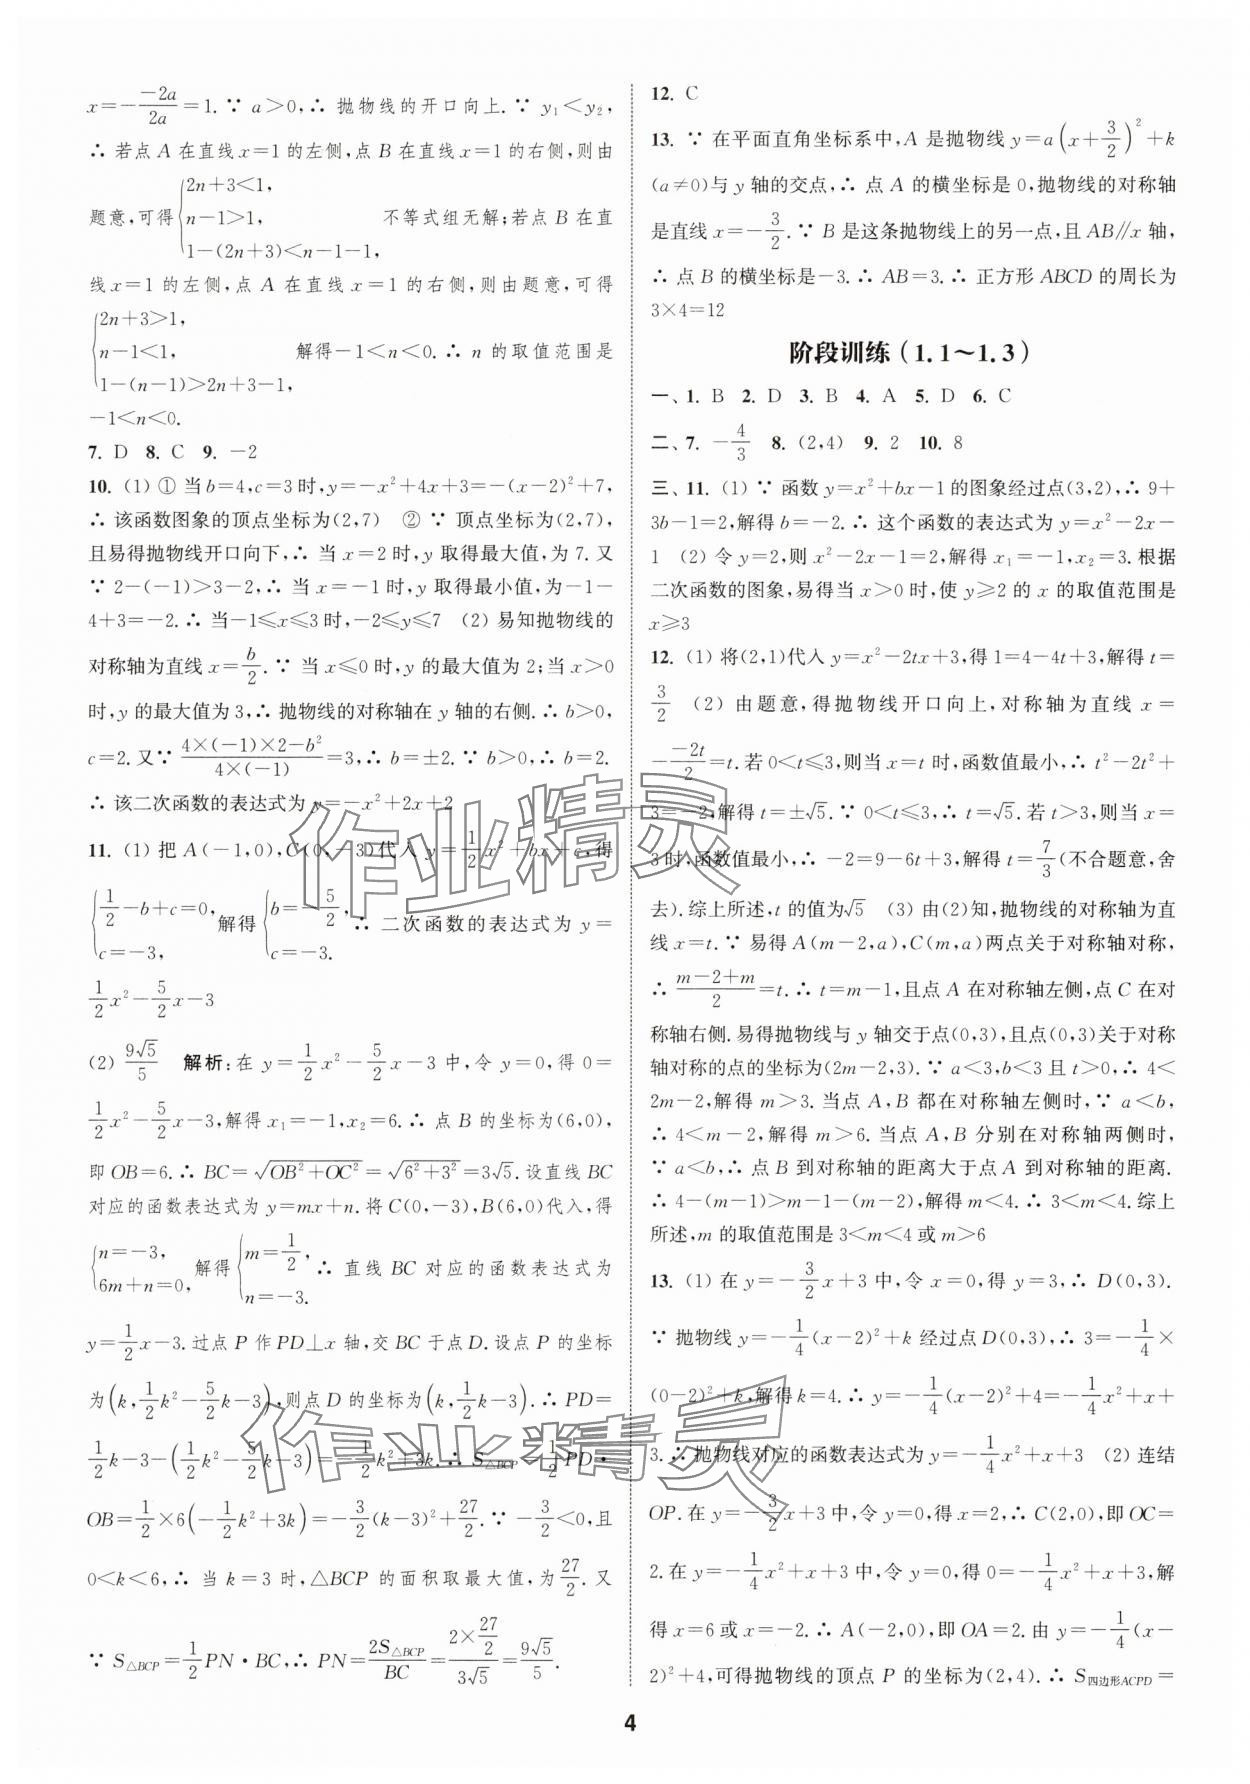 x=-\frac{-2a}{2a}=1.∵ a>0,∴ 抛物线的开口向上.∵ y₁<y₂,
∴ 若点 A 在直线 x=1 的左侧,点 B 在直线 x=1 的右侧,则由
题意,可得{2n+3<1, n-1>1, 1-(2n+3)<n-1-1, 不等式组无解;若点 B 在直
线 x=1 的左侧,点 A 在直线 x=1 的右侧,则由题意,可得
{2n+3>1, n-1<1, 1-(n-1)>2n+3-1, 解得-1<n<0.∴ n 的取值范围是
-1<n<0.
7. D 8. C 9. -2
10. (1) ① 当 b=4,c=3 时,y=-x²+4x+3=-(x-2)²+7,
∴ 该函数图象的顶点坐标为(2,7) ② ∵ 顶点坐标为(2,7),
且易得抛物线开口向下,∴ 当 x=2 时,y 取得最大值,为 7. 又
∵ 2-(-1)>3-2,∴ 当 x=-1 时,y 取得最小值,为-1-
4+3=-2.∴ 当-1≤x≤3 时,-2≤y≤7 (2) 易知抛物线的
对称轴为直线 x=\frac{b}{2}.∵ 当 x≤0 时,y 的最大值为 2;当 x>0
时,y 的最大值为 3,∴ 抛物线的对称轴在 y 轴的右侧.∴ b>0,
c=2. 又∵ \frac{4×(-1)×2-b²}{4×(-1)}=3,∴ b=±2.∵ b>0,∴ b=2.
∴ 该二次函数的表达式为 y=-x²+2x+2
11. (1) 把 A(-1,0),C(0,-3)代入 y=\frac{1}{2}x²+bx+c,得
{\frac{1}{2}-b+c=0, c=-3, 解得{b=-\frac{5}{2}, c=-3. ∴ 二次函数的表达式为 y=
\frac{1}{2}x²-\frac{5}{2}x-3
(2) \frac{9√5}{5} 解析:在 y=\frac{1}{2}x²-\frac{5}{2}x-3 中,令 y=0,得 0=
\frac{1}{2}x²-\frac{5}{2}x-3,解得 x₁=-1,x₂=6.∴ 点 B 的坐标为(6,0),
即 OB=6.∴ BC=√(OB²+OC²)=√(6²+3²)=3√5. 设直线 BC
对应的函数表达式为 y=mx+n. 将 C(0,-3),B(6,0)代入,得
{n=-3, 6m+n=0, 解得{m=\frac{1}{2}, n=-3. ∴ 直线 BC 对应的函数表达式为
y=\frac{1}{2}x-3. 过点 P 作 PD⊥x 轴,交 BC 于点 D. 设点 P 的坐标
为(k,\frac{1}{2}k²-\frac{5}{2}k-3),则点 D 的坐标为(k,\frac{1}{2}k-3).∴ PD=
\frac{1}{2}k-3-(\frac{1}{2}k²-\frac{5}{2}k-3)=-\frac{1}{2}k²+3k.∴ S△BCP=\frac{1}{2}PD·
OB=\frac{1}{2}×6(-\frac{1}{2}k²+3k)=-\frac{3}{2}(k-3)²+\frac{27}{2}.∵ -\frac{3}{2}<0,且
0<k<6,∴ 当 k=3 时,△BCP 的面积取最大值,为\frac{27}{2}. 又
∵ S△BCP=\frac{1}{2}PN·BC,∴ PN=\frac{2S△BCP}{BC}=\frac{2×\frac{27}{2}}{3√5}=\frac{9√5}{5}.
12. C
13. ∵ 在平面直角坐标系中,A 是抛物线 y=a(x+\frac{3}{2})²+k
(a≠0)与 y 轴的交点,∴ 点 A 的横坐标是 0,抛物线的对称轴
是直线 x=-\frac{3}{2}.∵ B 是这条抛物线上的另一点,且 AB∥x 轴,
∴ 点 B 的横坐标是-3.∴ AB=3.∴ 正方形 ABCD 的周长为
3×4=12
阶段训练(1.1~1.3)
一、1. B 2. D 3. B 4. A 5. D 6. C
二、7. -\frac{4}{3} 8. (2,4) 9. 2 10. 8
三、11. (1) ∵ 函数 y=x²+bx-1 的图象经过点(3,2),∴ 9+
3b-1=2,解得 b=-2.∴ 这个函数的表达式为 y=x²-2x-
1 (2) 令 y=2,则 x²-2x-1=2,解得 x₁=-1,x₂=3. 根据
二次函数的图象,易得当 x>0 时,使 y≥2 的 x 的取值范围是
x≥3
12. (1) 将(2,1)代入 y=x²-2tx+3,得 1=4-4t+3,解得 t=
\frac{3}{2} (2) 由题意,得抛物线开口向上,对称轴为直线 x=
-\frac{-2t}{2}=t. 若 0<t≤3,则当 x=t 时,函数值最小,∴ t²-2t²+
3=-2,解得 t=±√5.∵ 0<t≤3,∴ t=√5. 若 t>3,则当 x=
3 时,函数值最小,∴ -2=9-6t+3,解得 t=\frac{7}{3}(不合题意,舍
去). 综上所述,t 的值为√5 (3) 由(2)知,抛物线的对称轴为直
线 x=t.∵ 易得 A(m-2,a),C(m,a)两点关于对称轴对称,
∴ \frac{m-2+m}{2}=t.∴ t=m-1,且点 A 在对称轴左侧,点 C 在对
称轴右侧. 易得抛物线与 y 轴交于点(0,3),且点(0,3)关于对称
轴对称的点的坐标为(2m-2,3).∵ a<3,b<3 且 t>0,∴ 4<
2m-2,解得 m>3. 当点 A,B 都在对称轴左侧时,∵ a<b,
∴ 4<m-2,解得 m>6. 当点 A,B 分别在对称轴两侧时,
∵ a<b,∴ 点 B 到对称轴的距离大于点 A 到对称轴的距离.
∴ 4-(m-1)>m-1-(m-2),解得 m<4.∴ 3<m<4. 综上
所述,m 的取值范围是 3<m<4 或 m>6
13. (1) 在 y=-\frac{3}{2}x+3 中,令 x=0,得 y=3,∴ D(0,3).
∵ 抛物线 y=-\frac{1}{4}(x-2)²+k 经过点 D(0,3),∴ 3=-\frac{1}{4}×
(0-2)²+k,解得 k=4.∴ y=-\frac{1}{4}(x-2)²+4=-\frac{1}{4}x²+x+
3.∴ 抛物线对应的函数表达式为 y=-\frac{1}{4}x²+x+3 (2) 连结
OP. 在 y=-\frac{3}{2}x+3 中,令 y=0,得 x=2.∴ C(2,0),即 OC=
2. 在 y=-\frac{1}{4}x²+x+3 中,令 y=0,得 0=-\frac{1}{4}x²+x+3,解
得 x=6 或 x=-2.∴ A(-2,0),即 OA=2. 由 y=-\frac{1}{4}(x-
2)²+4,可得抛物线的顶点 P 的坐标为(2,4).∴ S四边形ACPD=
4
作业精灵
作业精灵